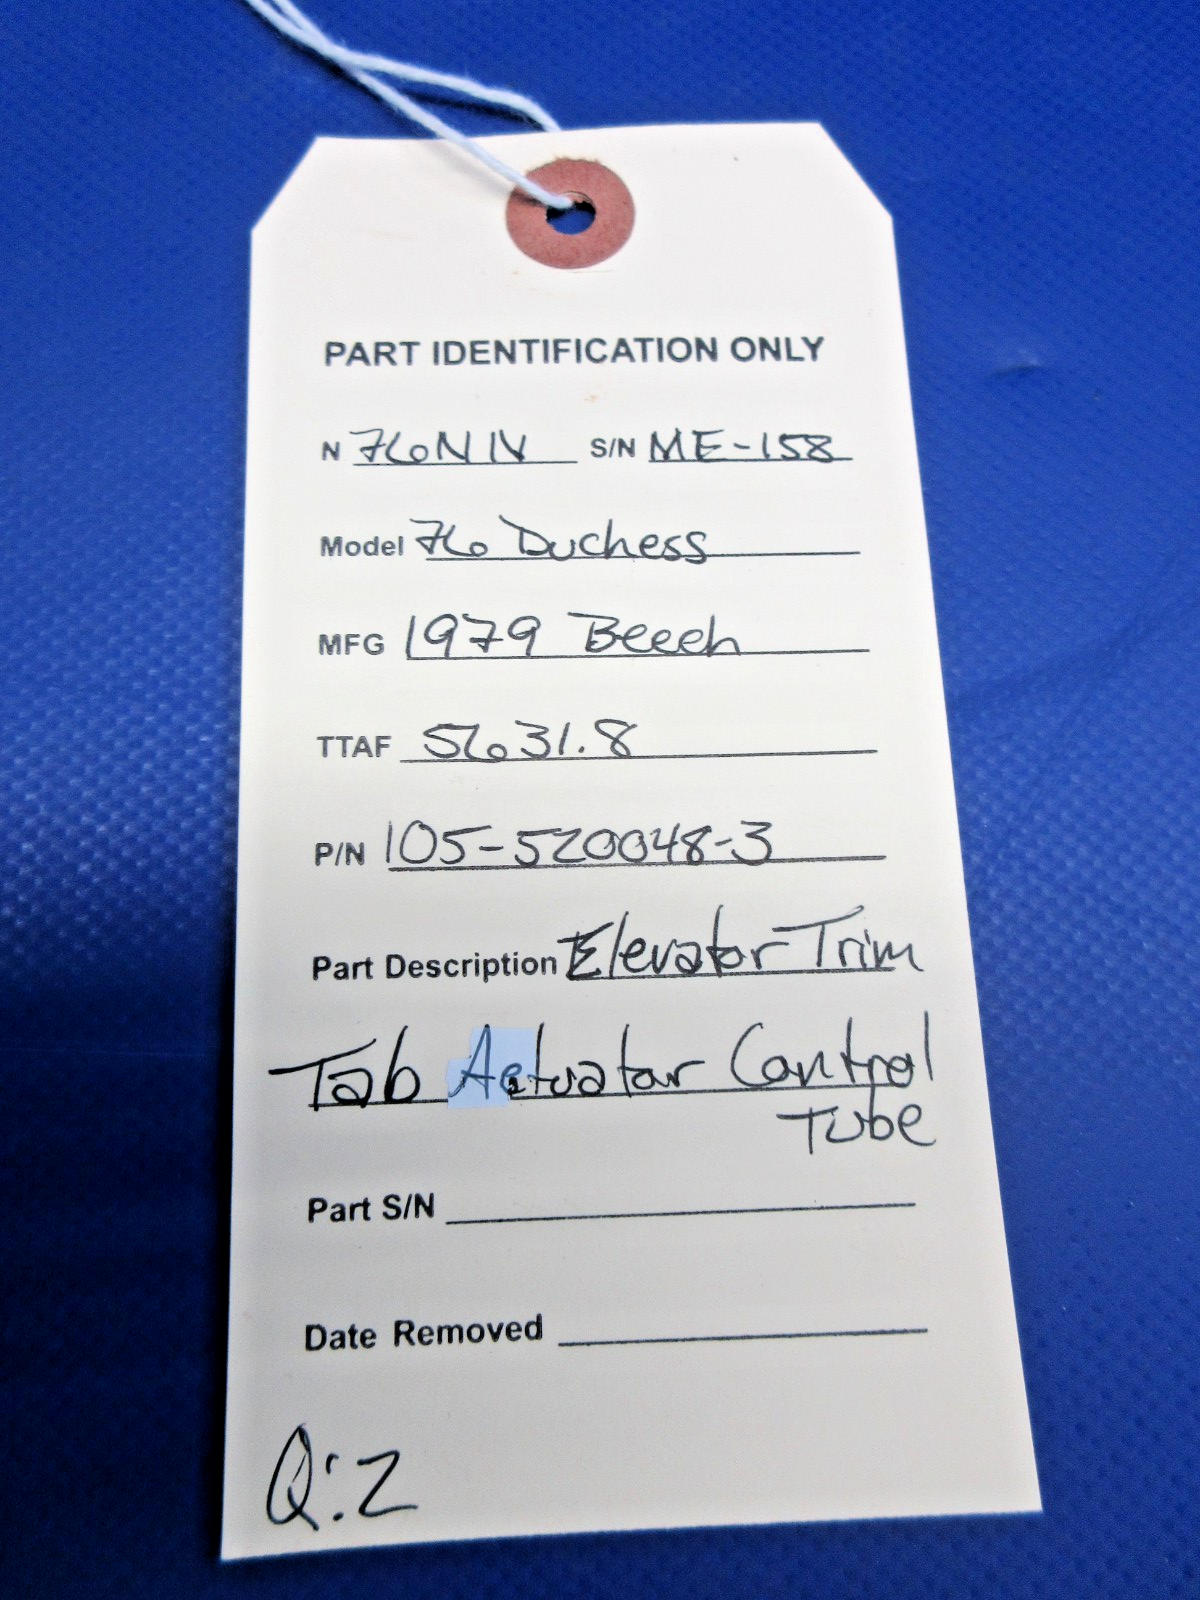 PART IDENTIFICATION ONLY
N 76NIV S/N ME-158
Model 76 Duchess
MFG 1979 Beech
TTAF 5631.8
P/N 105-520048-3
Part Description Elevator Trim
Tab Actuator Control
Tube
Part S/N
Date Removed
Q:2